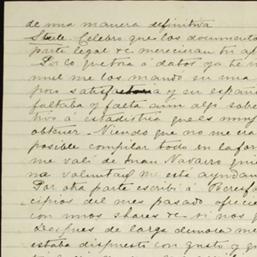 de una manera definitiva
Stele. Celebro que los documento
parte legal &c. merecieran tu ap
Por lo que toca á datos ya te
me los mandó en una
poco satisfactoria y su españo
faltaba y falta aun algo sobr
tivo á estadística que es muy
obtener. Viendo que no me era
posible compilar todo en la for
me vali de Juan Navarro quie
na voluntad me está ayudan
Por otra parte escribí á
cipios del mes pasado, ofrecie
con unos shares &c. si nos
Despues de larga demora me
estaba dispuesto con gusto y